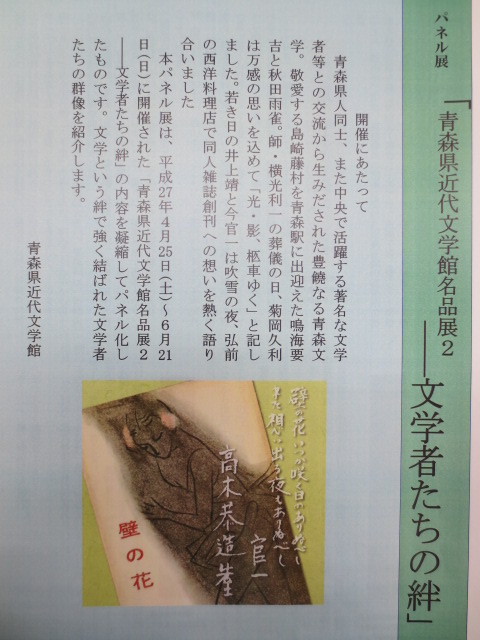 パネル展
「青森県近代文学館名品展2
――文学者たちの絆」
開催にあたって
青森県人同士、また中央で活躍する著名な文学
者等との交流から生みだされた豊饒なる青森文
学。敬愛する島崎藤村を青森駅に出迎えた鳴海要
吉と秋田雨雀。師・横光利一の葬儀の日、菊岡久利
は万感の思いを込めて「光・影、柩車ゆく」と記し
ました。若き日の井上靖と今官一は吹雪の夜、弘前
の西洋料理店で同人雑誌創刊への想いを熱く語り
合いました
本パネル展は、平成27年4月25日(土)～6月21
日(日)に開催された「青森県近代文学館名品展2
――文学者たちの絆」の内容を凝縮してパネル化し
たものです。文学という絆で強く結ばれた文学者
たちの群像を紹介します。
青森県近代文学館
壁の花いつか咲く日のありぬべし
また想い出る夜もありぬべし
官一
高木恭造
壁の花